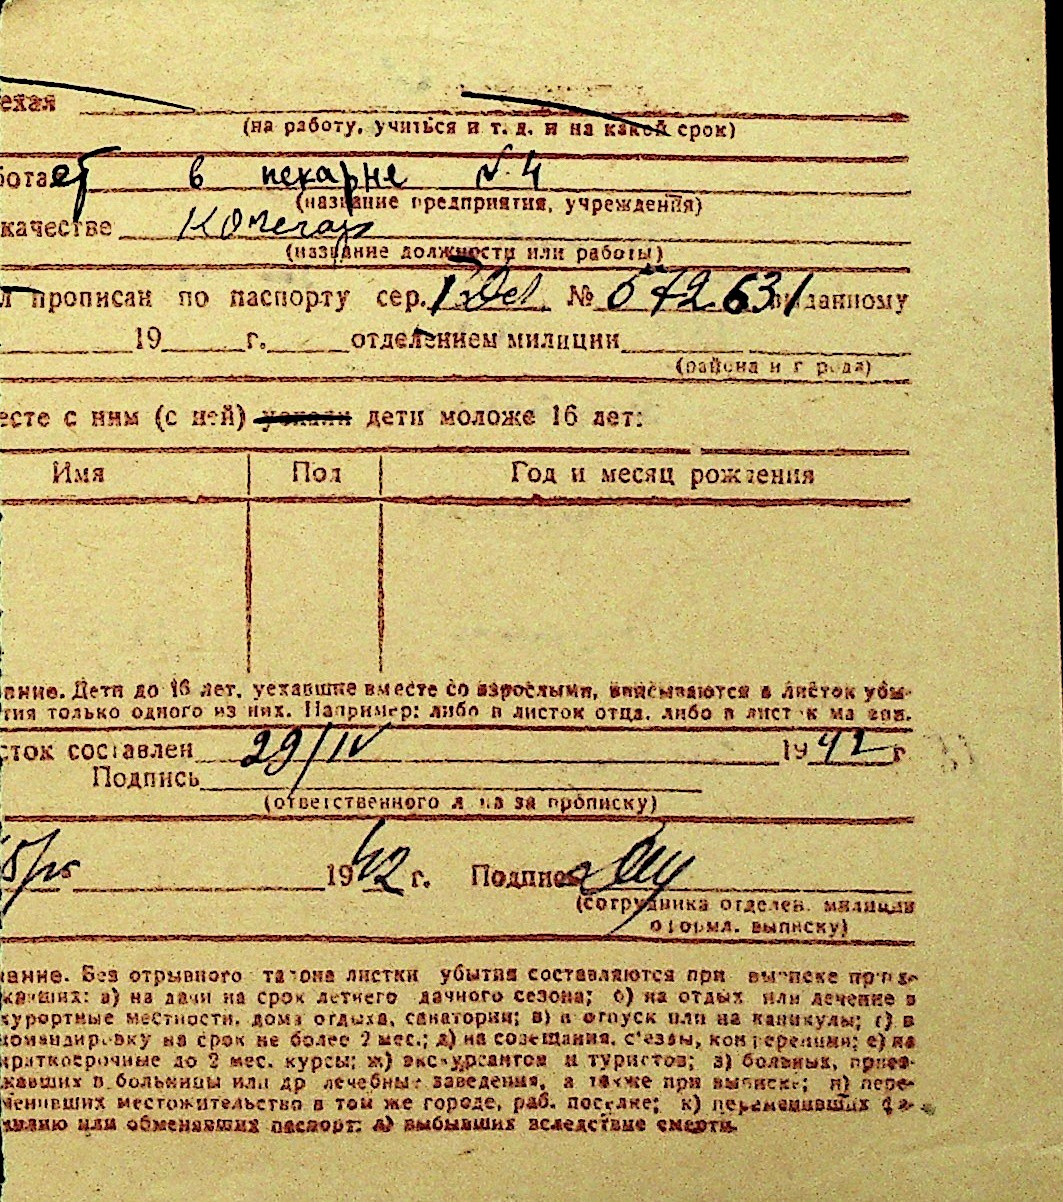 ехая
(на работу, учиться и т. д. и на какой срок)
ботает в пекарне N. 4
(название предприятия, учреждения)
качестве Кочегар
(название должности или работы)
л прописан по паспорту сер. № 572631 выданному
19 г. отделением милиции
(района и города)
есте с ним (с ней) уехали дети моложе 16 лет:
Имя Пол Год и месяц рождения
ание. Дети до 16 лет, уехавшие вместе со взрослыми, вписываются в листок убы-
тия только одного из них. Например: либо в листок отца, либо в листок матери.
сток составлен 29/IV 1942 г.
Подпись
(ответственного лица за прописку)
1942 г. Подпись
(сотрудника отделен. милиции
оформл. выписку)
ание. Без отрывного талона листки убытия составляются при выписке приез-
жавших: а) на дачи на срок летнего дачного сезона; б) на отдых или лечение в
курортные местности, дома отдыха, санатории; в) в отпуск или на каникулы; г) в
командировку на срок не более 2 мес.; д) на совещания, с'езды, конференции; е) на
краткосрочные до 2 мес. курсы; ж) экскурсантов и туристов; з) больных, приез-
жавших в больницы или др лечебные заведения, а также при выписке; и) пере-
менивших местожительство в том же городе, раб. поселке; к) переменивших фа-
милию или обменявших паспорт; л) выбывших вследствие смерти.